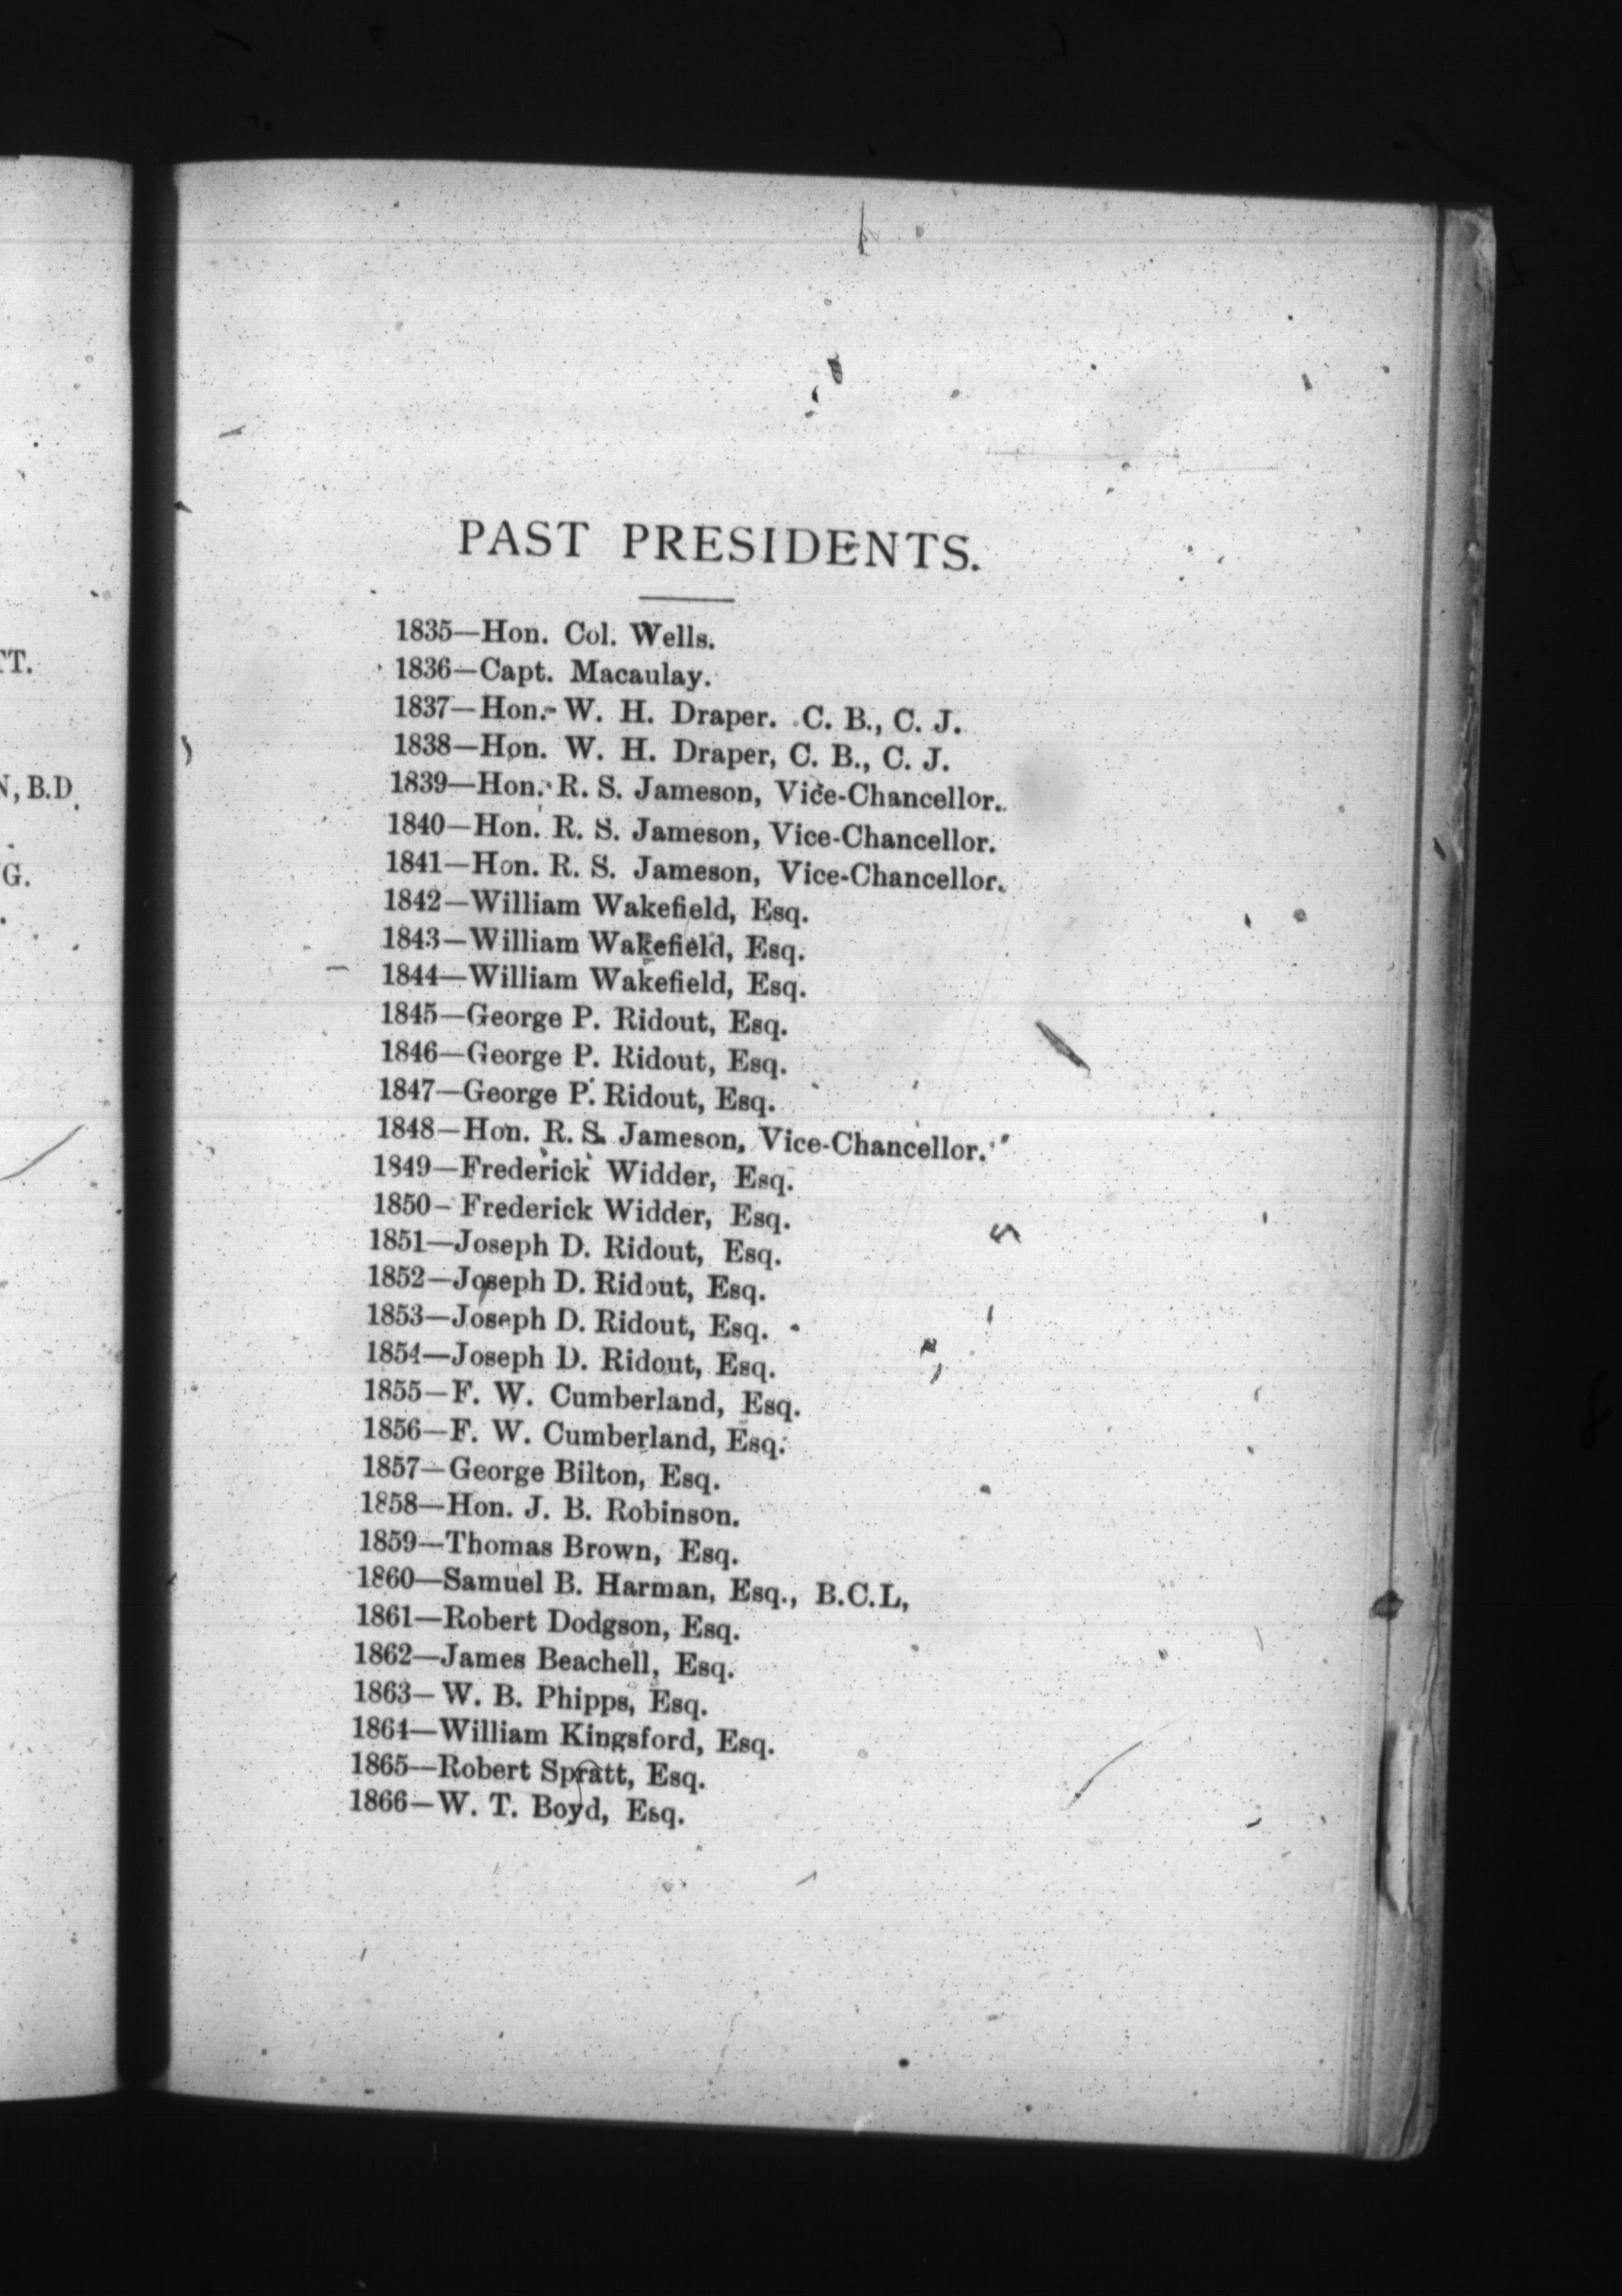 PAST PRESIDENTS.
1835—Hon. Col. Wells.
1836—Capt. Macaulay.
1837—Hon. W. H. Draper. C. B., C. J.
1838—Hon. W. H. Draper, C. B., C. J.
1839—Hon. R. S. Jameson, Vice-Chancellor.
1840—Hon. R. S. Jameson, Vice-Chancellor.
1841—Hon. R. S. Jameson, Vice-Chancellor.
1842—William Wakefield, Esq.
1843—William Wakefield, Esq.
1844—William Wakefield, Esq.
1845—George P. Ridout, Esq.
1846—George P. Ridout, Esq.
1847—George P. Ridout, Esq.
1848—Hon. R. S. Jameson, Vice-Chancellor.
1849—Frederick Widder, Esq.
1850—Frederick Widder, Esq.
1851—Joseph D. Ridout, Esq.
1852—Joseph D. Ridout, Esq.
1853—Joseph D. Ridout, Esq.
1854—Joseph D. Ridout, Esq.
1855—F. W. Cumberland, Esq.
1856—F. W. Cumberland, Esq.
1857—George Bilton, Esq.
1858—Hon. J. B. Robinson.
1859—Thomas Brown, Esq.
1860—Samuel B. Harman, Esq., B.C.L,
1861—Robert Dodgson, Esq.
1862—James Beachell, Esq.
1863—W. B. Phipps, Esq.
1864—William Kingsford, Esq.
1865—Robert Spratt, Esq.
1866—W. T. Boyd, Esq.